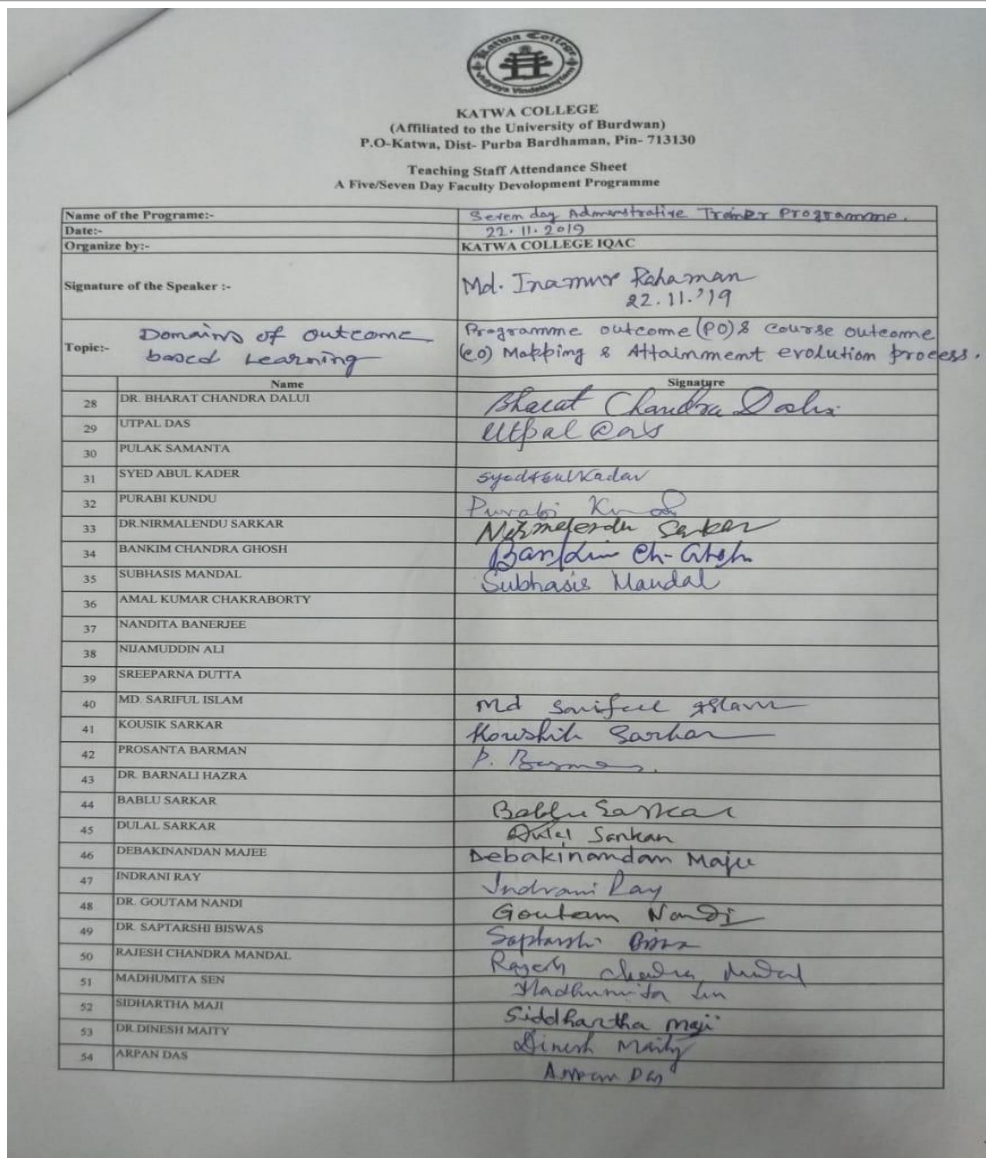 Katwa College
Vidyaya Vindatemritam
KATWA COLLEGE
(Affiliated to the University of Burdwan)
P.O-Katwa, Dist- Purba Bardhaman, Pin- 713130
Teaching Staff Attendance Sheet
A Five/Seven Day Faculty Devolopment Programme
Name of the Programe:- Seven day Admenstrative Trainer Programme.
Date:- 22.11.2019
Organize by:- KATWA COLLEGE IQAC
Signature of the Speaker :- Md. Inamur Rahaman
22.11.'19
Topic:- Domains of outcome based Learning Programme outcome (PO) & Course outcome
(CO) Mapping & Attainment evolution process.
Name Signature
28 DR. BHARAT CHANDRA DALUI Bharat Chandra Dalui
29 UTPAL DAS Utpal Das
30 PULAK SAMANTA
31 SYED ABUL KADER Syed Abul Kadar
32 PURABI KUNDU Purabi Kundu
33 DR.NIRMALENDU SARKAR Nirmalendu Sarkar
34 BANKIM CHANDRA GHOSH Bankim Ch- Ghosh
35 SUBHASIS MANDAL Subhasis Mandal
36 AMAL KUMAR CHAKRABORTY
37 NANDITA BANERJEE
38 NIJAMUDDIN ALI
39 SREEPARNA DUTTA
40 MD. SARIFUL ISLAM Md Sariful Islam
41 KOUSIK SARKAR Koushik Sarkar
42 PROSANTA BARMAN P. Barman.
43 DR. BARNALI HAZRA
44 BABLU SARKAR Bablu Sarkar
45 DULAL SARKAR Dulal Sarkar
46 DEBAKINANDAN MAJEE Debakinandan Majee
47 INDRANI RAY Indrani Ray
48 DR. GOUTAM NANDI Goutam Nandi
49 DR. SAPTARSHI BISWAS Saptarshi Biswas
50 RAJESH CHANDRA MANDAL Rajesh Chandra Mandal
51 MADHUMITA SEN Madhumita Sen
52 SIDHARTHA MAJI Siddhartha Maji
53 DR.DINESH MAITY Dinesh Maity
54 ARPAN DAS Arpan Das